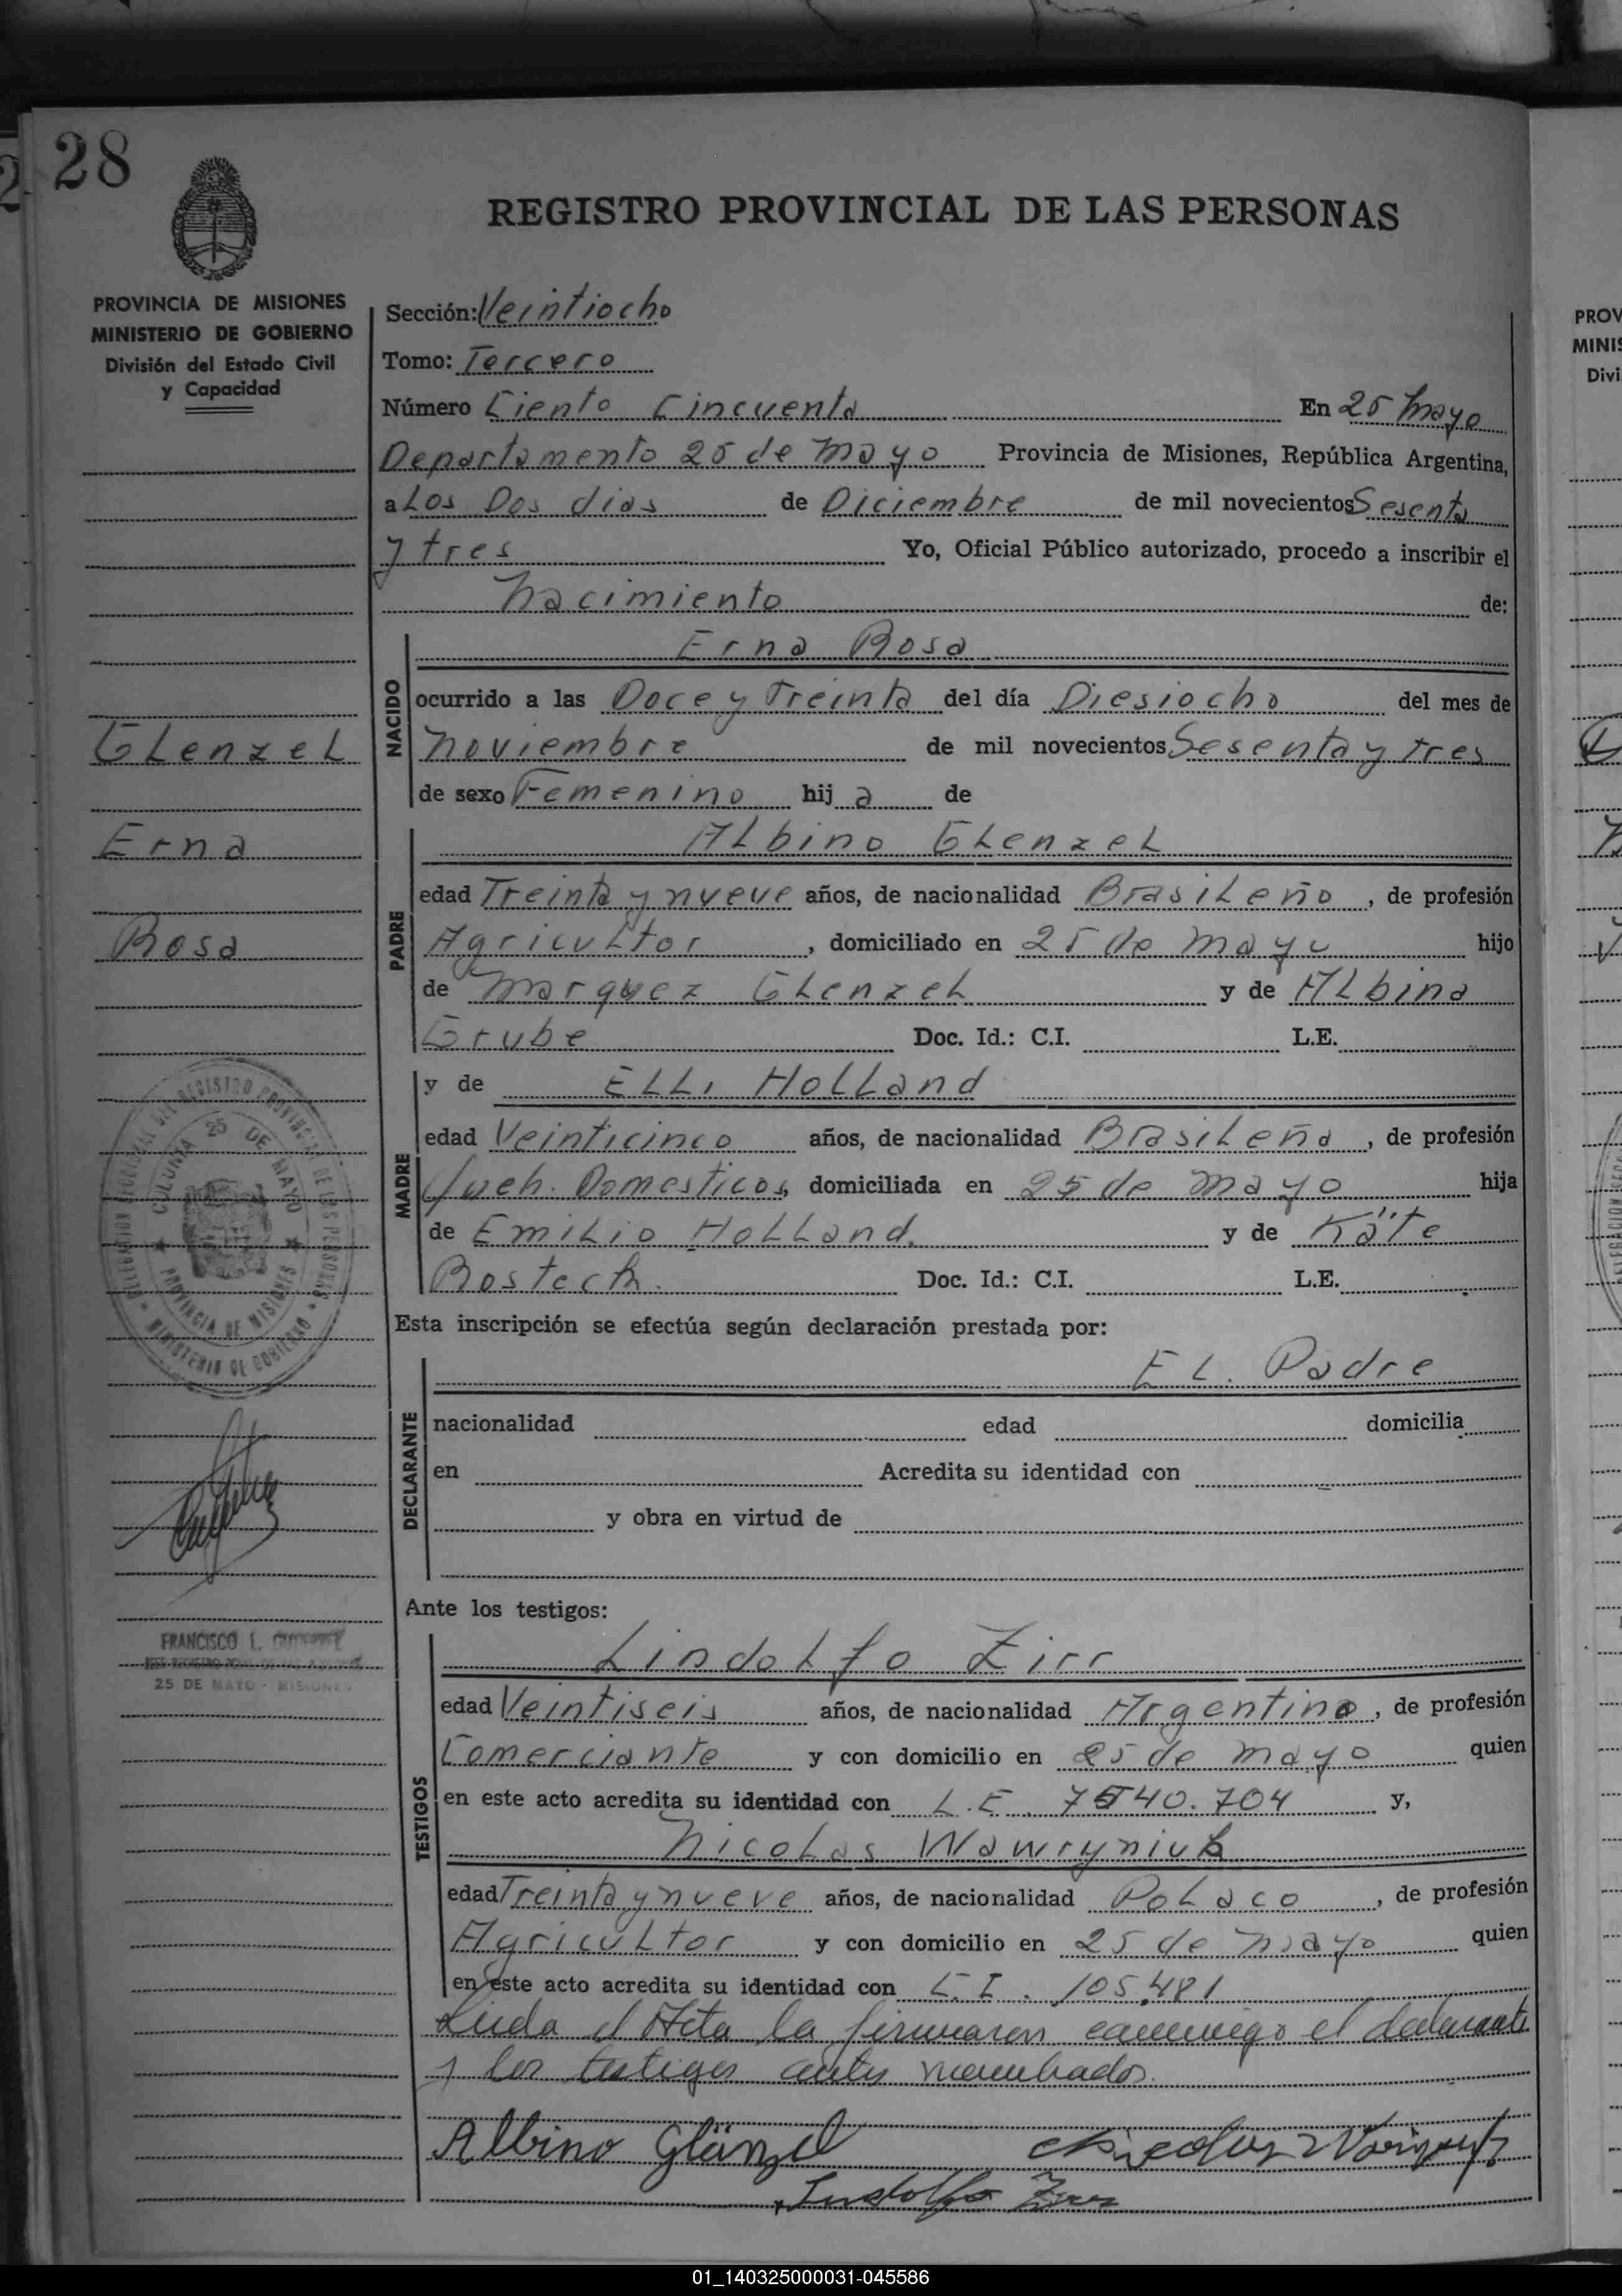 28
REGISTRO PROVINCIAL DE LAS PERSONAS
PROVINCIA DE MISIONES
MINISTERIO DE GOBIERNO
División del Estado Civil
y Capacidad
Glenzel
Erna
Rosa
COLONIA 25 DE MAYO
PROVINCIA DE MISIONES
MINISTERIO DE GOBIERNO
FRANCISCO I.
25 DE MAYO - MISIONES
Sección: Veintiocho
Tomo: Tercero
Número Ciento Cincuenta En 25 Mayo
Departamento 25 de Mayo Provincia de Misiones, República Argentina,
a Los Dos dias de Diciembre de mil novecientos Sesenta
y tres Yo, Oficial Público autorizado, procedo a inscribir el
Nacimiento de:
NACIDO
Erna Rosa
ocurrido a las Doce y Treinta del día Diesiocho del mes de
Noviembre de mil novecientos Sesenta y tres
de sexo Femenino hij a de
PADRE
Albino Glenzel
edad Treinta y nueve años, de nacionalidad Brasileño, de profesión
Agricultor, domiciliado en 25 de Mayo hijo
de Marquez Glenzel y de Albina
Grube Doc. Id.: C.I. L.E.
MADRE
y de Elli Holland
edad Veinticinco años, de nacionalidad Brasileña, de profesión
Queh. Domesticos, domiciliada en 25 de Mayo hija
de Emilio Holland. y de Käte
Doc. Id.: C.I. L.E.
Esta inscripción se efectúa según declaración prestada por:
DECLARANTE
El. Padre
nacionalidad edad domicilia
en Acredita su identidad con
y obra en virtud de
Ante los testigos:
TESTIGOS
Lindolfo Zirr
edad Veintiseis años, de nacionalidad Argentino, de profesión
Comerciante y con domicilio en 25 de Mayo quien
en este acto acredita su identidad con L.E. 7540.704 y,
Nicolas Wawryniuk
edad Treinta y nueve años, de nacionalidad Polaco, de profesión
Agricultor y con domicilio en 25 de Mayo quien
en este acto acredita su identidad con C.I. 105.481
Leida el Acta la firmaron conmigo el declarante
y los testigos antes nombrados.
Albino Glänzel
Lindolfo Zirr
PROV
MINIS
Divi
01_140325000031-045586